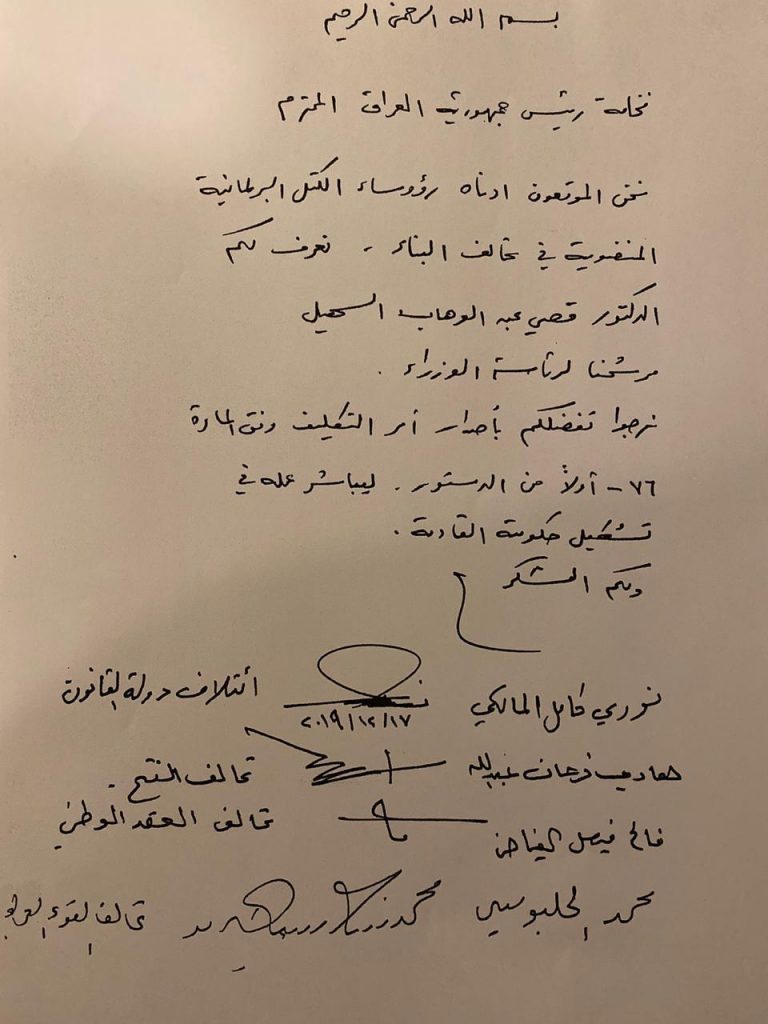 بسم الله الرحمن الرحيم
فخامة رئيس جمهورية العراق المحترم
نحن الموقعون ادناه رؤوساء الكتل البرلمانية
المنضوية في تحالف البناء ، نعرف لكم
الدكتور قصي عبد الوهاب السهيل
مرشحنا لرئاسة الوزراء .
نرجوا تفضلكم بأصدار أمر التكليف وفق المادة
٧٦ - أولاً من الدستور . ليباشر عمله في
تشكيل حكومته القادمة .
ولكم الشكر
نوري كامل المالكي ائتلاف دولة القانون
٢٠١٩/١٢/١٧
هادي فرحان عبدالله تحالف الفتح .
فالح فيصل الفياض تحالف العقد الوطني
محمد الحلبوسي محمد تحالف القوى